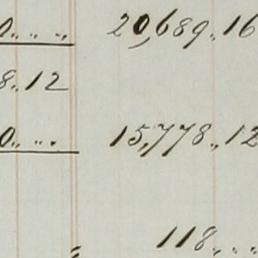 0„ „ „ 20,689„16
8„12
0„ „ „ 15,778„12
„ 118„ „ „